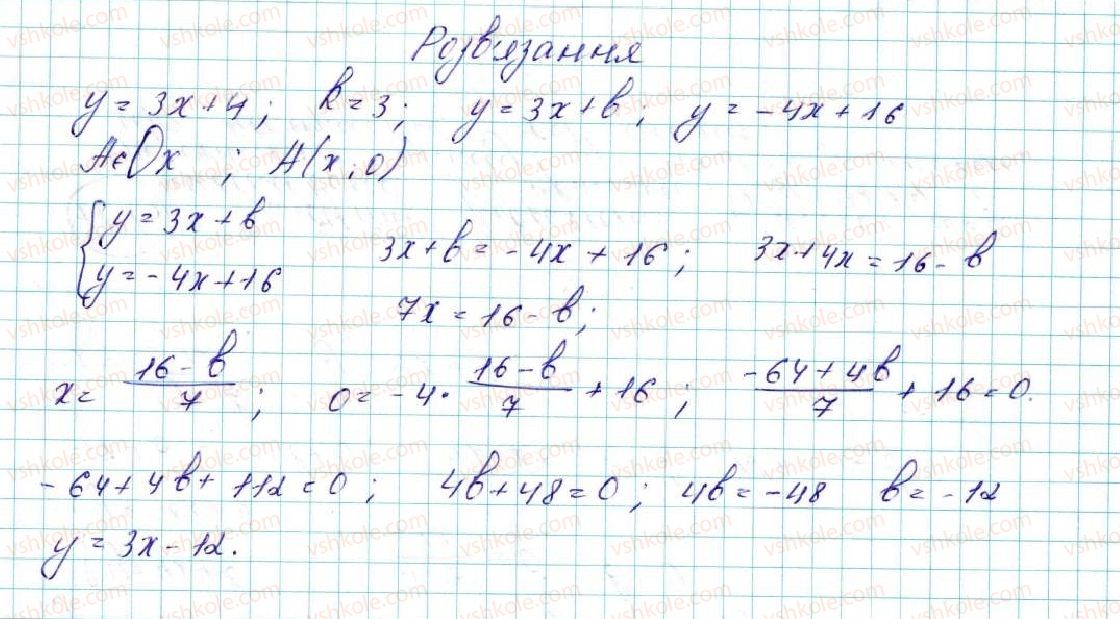 Розв'язання
y = 3x + 4; k = 3; y = 3x + b; y = -4x + 16
A∈Ox ; A(x; 0)
{ y = 3x + b
{ y = -4x + 16
3x + b = -4x + 16; 3x + 4x = 16 - b
7x = 16 - b;
x = (16 - b)/7; 0 = -4 · (16 - b)/7 + 16; (-64 + 4b)/7 + 16 = 0.
-64 + 4b + 112 = 0; 4b + 48 = 0; 4b = -48 b = -12
y = 3x - 12.
vshkole.com